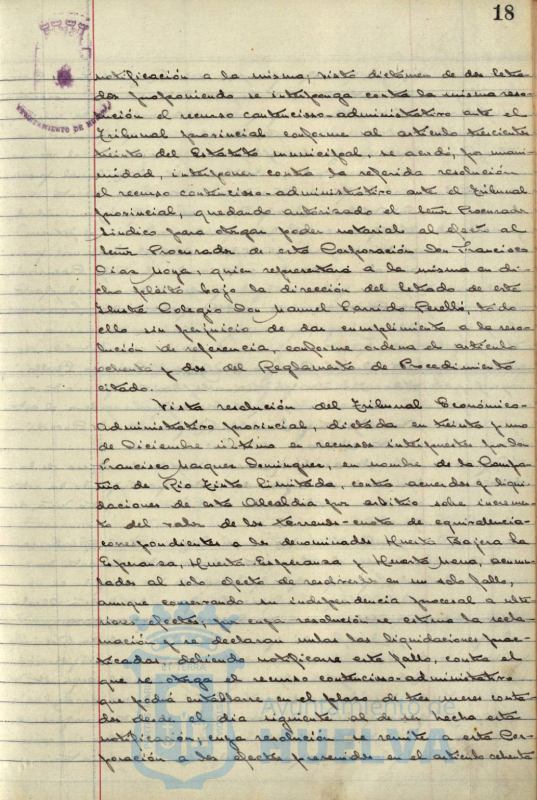 18
AYUNTAMIENTO DE HUELVA
notificación a la misma, visto dictámen de dos letra-
dos proponiendo se interponga contra la misma reso-
lución el recurso contencioso-administrativo ante el
Tribunal provincial conforme al artículo trescientos
treinta del Estatuto municipal, se acordó, por unani-
midad, interponer contra la referida resolución
el recurso contencioso-administrativo ante el Tribunal
provincial, quedando autorizado el Señor Procurador
Síndico para otorgar poder notarial al efecto al
Señor Procurador de esta Corporación Don Francisco
Díaz Moya, quien representará a la misma en di-
cho pleito bajo la dirección del letrado de este
Ilustre Colegio Don Manuel Garrido Perelló, todo
ello sin perjuicio de dar cumplimiento a la reso-
lución de referencia, conforme ordena el artículo
ochenta y dos del Reglamento de Procedimiento
citado.
Vista resolución del Tribunal Económico-
administrativo provincial, dictada en treinta y uno
de Diciembre último en recursos interpuestos por Don
Francisco Marquez Dominguez, en nombre de la Compa-
ñía de Rio Tinto Limitada, contra acuerdos y liqui-
daciones de esta Alcaldía por arbitrio sobre incremen-
to del valor de los terrenos-cuota de equivalencia-
correspondientes a los denominados Huerto Bajera La
Esperanza, Huerto Esperanza y Huerta Mena, acumu-
lados al solo efecto de resolverlos en un solo fallo,
aunque conservando su independencia procesal a ulte-
riores efectos, por cuya resolución se estima la recla-
mación y se declaran nulas las liquidaciones prac-
ticadas debiendo notificarse este fallo, contra el
que se otorga el recurso contencioso-administrativo
que podrá entablarse en el plazo de tres meses conta-
dos desde el dia siguiente al de su fecha esta
notificación, cuya resolución se remite a esta Cor-
poración a los efectos prevenidos en el artículo ochenta
Ayuntamiento de
HUELVA